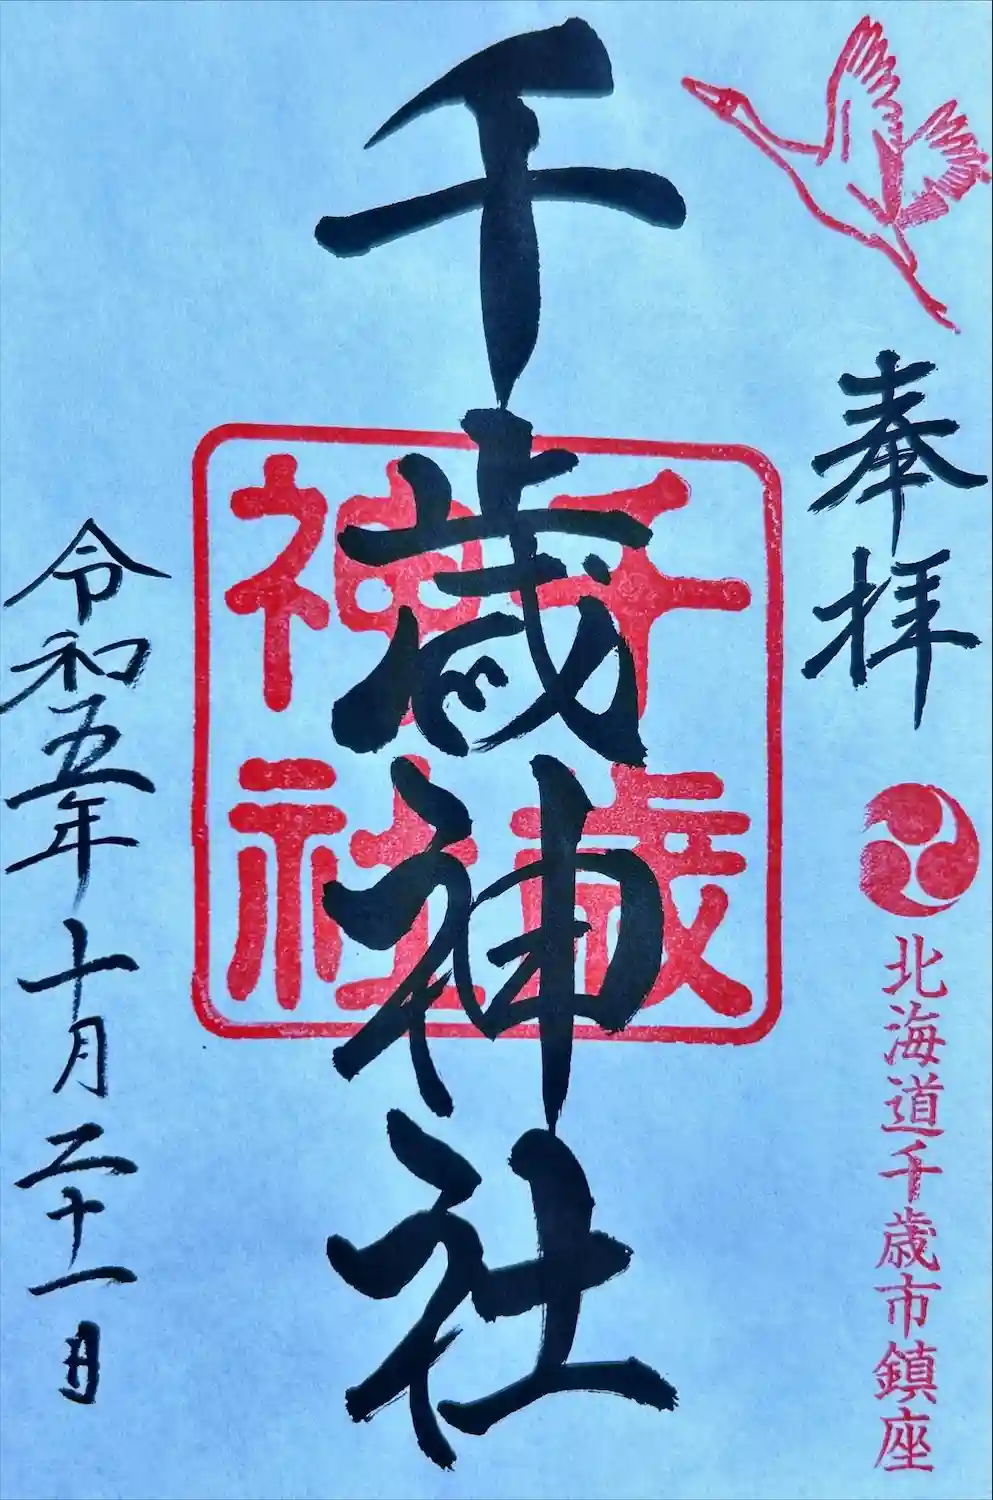 奉拝
北海道千歳市鎮座
千歳神社
千歳
神社
令和五年十月二十一日